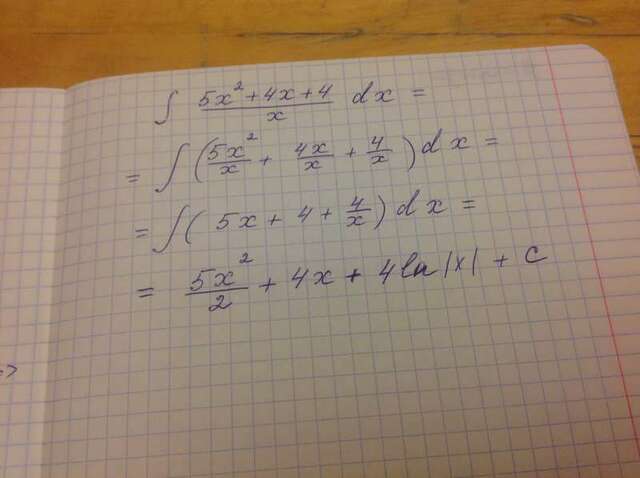 ∫ (5x² + 4x + 4)/x dx =
= ∫ (5x²/x + 4x/x + 4/x) dx =
= ∫ (5x + 4 + 4/x) dx =
= 5x²/2 + 4x + 4 ln |x| + C